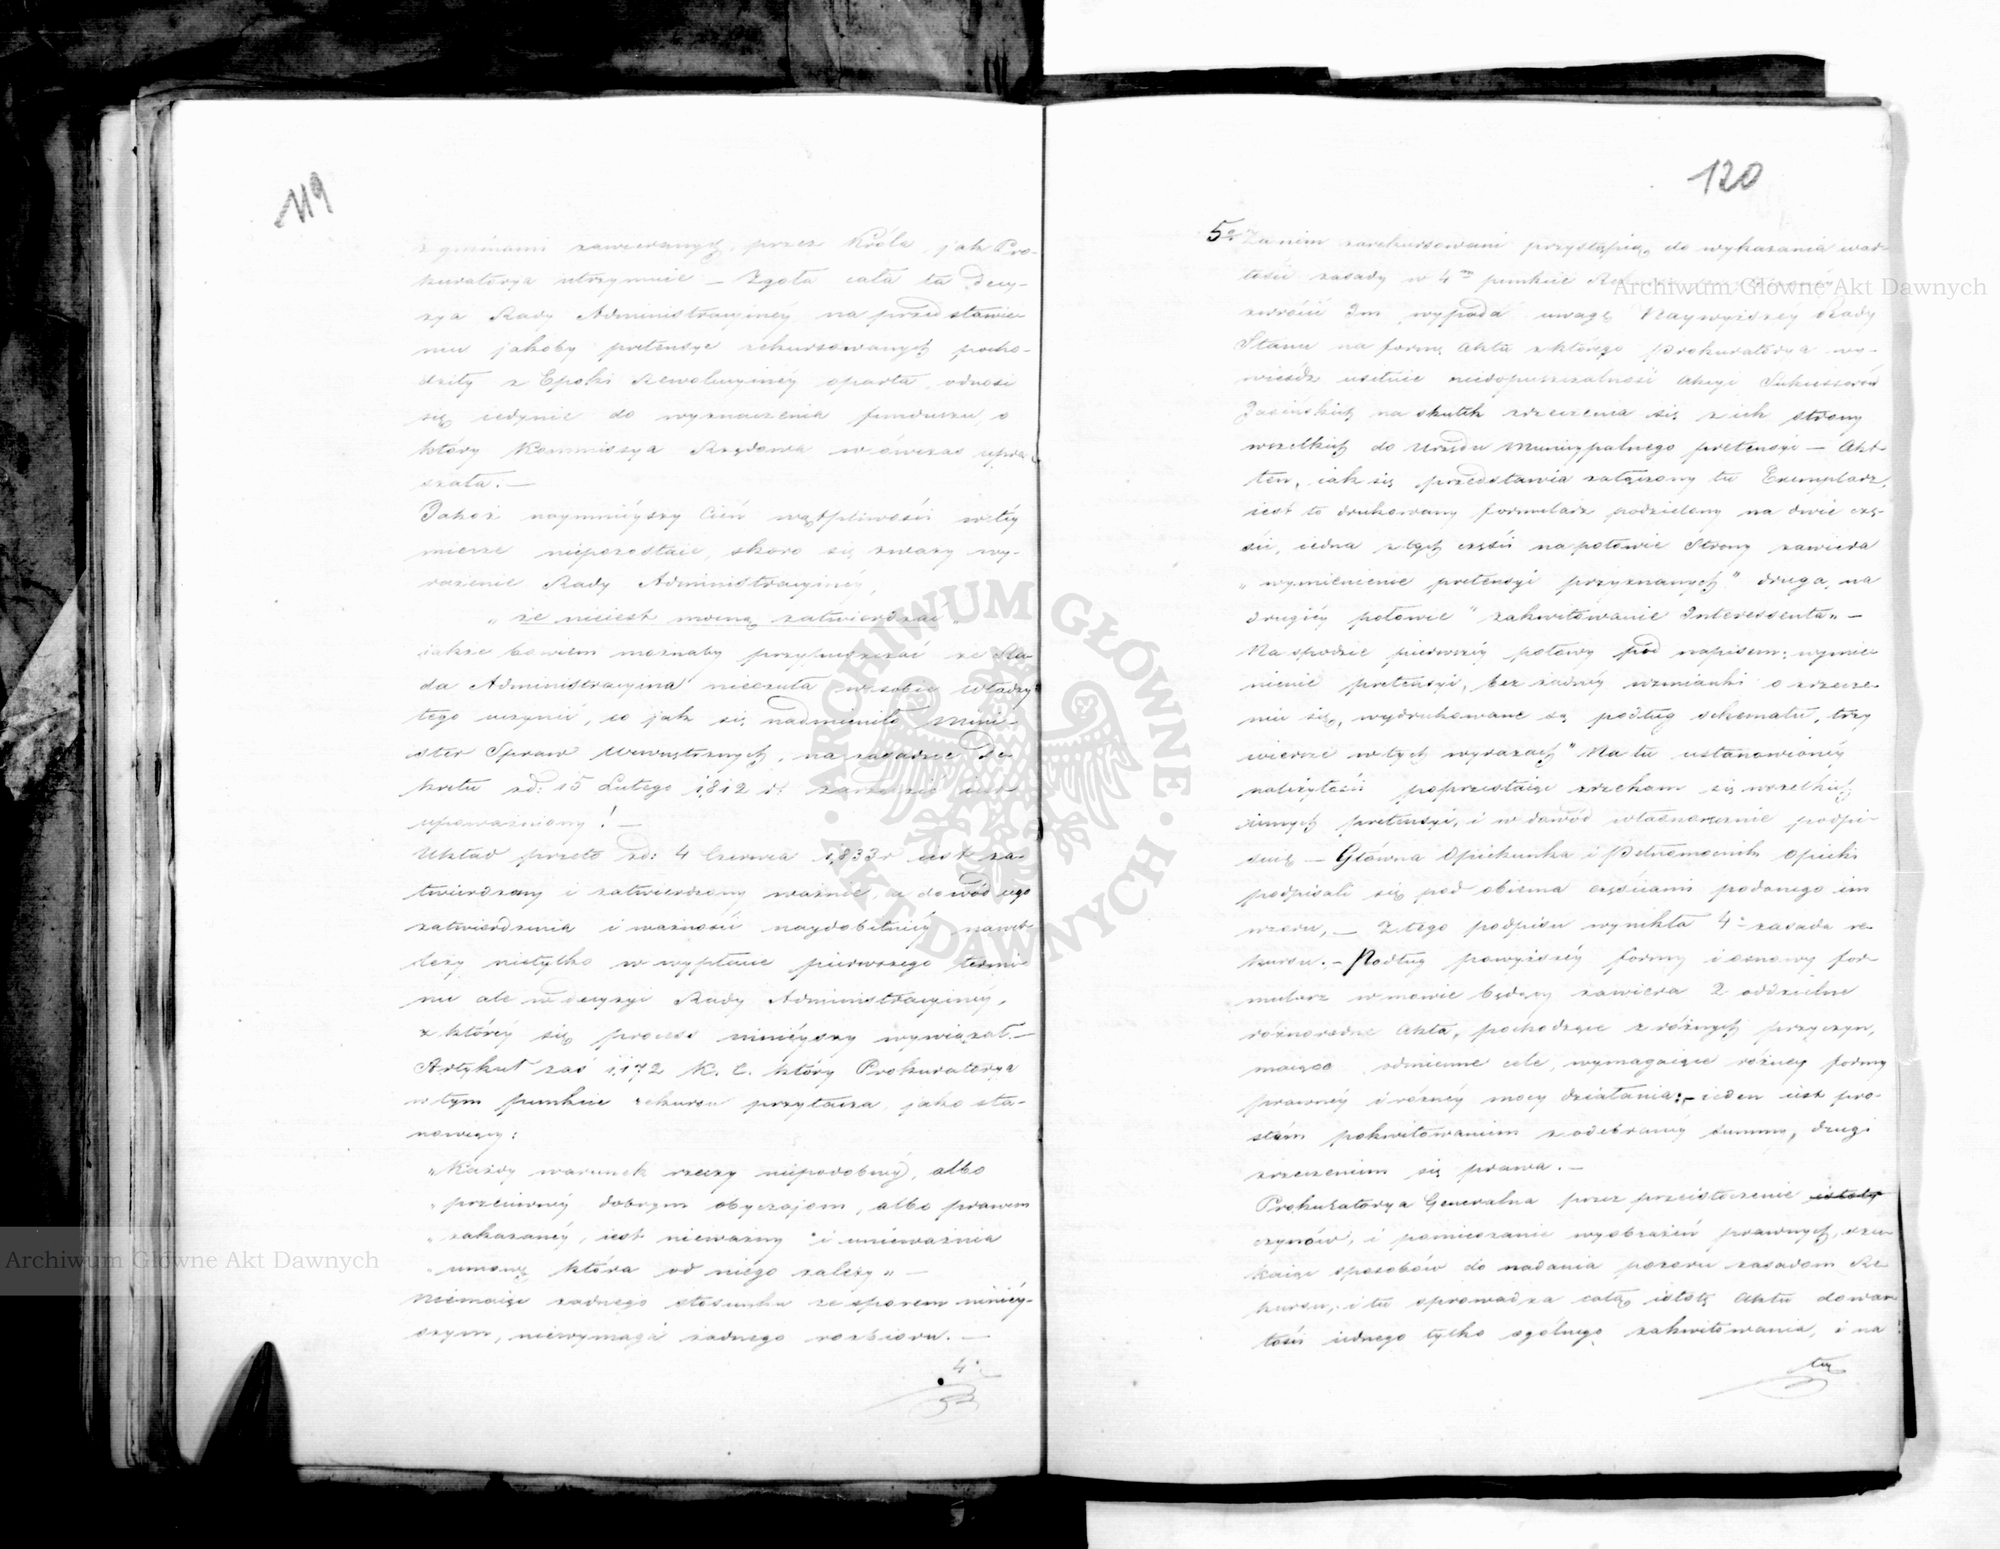 119
z gminami zawieranych, przez Króla, jak Pro-
kuratorya utrzymuie — Zgoła cała ta decy-
zya Rady Administracyinéy na przedstawie-
niu jakoby pretensye rekursowanych pocho-
dziły z Epoki Rewolucyinéy oparta, odnosi
się iedynie do wyznaczenia funduszu, o
który Kommissya Rządowa w ówczas upra-
szała. —
Jakoż naymnieyszy cień wątpliwości w téy
mierze niepozostaie, skoro się zważy wy-
rażenie Rady Administracyinéy,
„że nieiest mocną zatwierdzać"
iakże bowiem możnaby przypuszczać że Ra-
da Administracyina nieczuła w sobie władzy
tego uczynić, co jak się nadmieniło, Mini-
ster Spraw Wewnętrznych, na zasadzie De-
kretu zd: 15 Lutego 1812 r. zarządzić iest
upoważniony! —
Układ przeto zd: 4 Czerwca 1833 r iest za-
twierdzony i zatwierdzony ważnie, a dowód iego
zatwierdzenia i ważności naydobitniéy nawet
leży nietylko w wypłacie pierwszego termi-
nu ale w decyzyi Rady Administracyinéy,
z któréy się process ninieyszy wywiązał. —
Artykuł zaś 1172 K. C. który Prokuratorya
w tym punkcie rekursu przytacza, jako sta-
nowiący:
„Każdy warunek rzeczy niepodobnéy, albo
„przeciwnéy dobrym obyczajom, albo prawem
„zakazanéy, iest nieważny i unieważnia
„umowę która od niego zależy" —
Niemaiąc żadnego stosunku ze sporem niniey-
szym, niewymaga żadnego rozbioru. —
4°
120
5° Zanim zarekursowani przystąpią do wykazania war-
tości zasady w 4m punkcie
zwrócić Im wypada uwagę Naywyższéy Rady
Stanu na formę Aktu z którego Prokuratorya wy-
wieśdź usiłuie niedopuszczalność Akcyi Sukcessorów
Jasińskich na skutek zrzeczenia się z ich strony
wszelkich do Urzędu Municypalnego pretensyi — Akt
ten, iak się przedstawia załączony tu Exemplarz,
iest to drukowany formularz podzielony na dwie czę-
ści, iedna z tych części na połowie Strony zawiera
„wymienienie pretensyi przyznanych" druga, na
drugiéy połowie „zakwitowanie Interessenta" —
Na spodzie pierwszéy połowy pod napisem: wymie-
nienie pretensyi, bez żadnéy wzmianki o zrzecze-
niu się, wydrukowane są podług schematu, trzy
wiersze w tych wyrazach „Na tu ustanowionéy
należytości poprzestaiąc zrzekam się wszelkich
innych pretensyi, i w dowód własnoręcznie podpi-
suię — Główna Opiekunka i Pełnomocnik Opieki
podpisali się pod obiema częściami podanego im
wzoru, — Z tego podpisu wynikła 4a zasada re-
kursu. — Podług powyższéy formy i osnowy for-
mularz w mowie będący zawiera 2 oddzielne
różnorodne Akta, pochodzące z różnych przyczyn,
maiące odmienne cele, wymagaiące różnéy formy
prawnéy i różnéy mocy działania: — ieden iest pro-
stém pokwitowaniem z odebranéy summy, drugi
zrzeczeniem się prawa. —
Prokuratorya Generalna przez przeistoczenie istoty
czynów, i pomieszanie wyobrażeń prawnych, szu-
kaiąc sposobów do nadania pozoru zasadom Re-
kursu, i tu sprowadza całą istotę Aktu do war-
tości iednego tylko ogólnego zakwitowania, i na
téy
Archiwum Główne Akt Dawnych
Archiwum Główne Akt Dawnych
ARCHIWUM GŁÓWNE AKT DAWNYCH